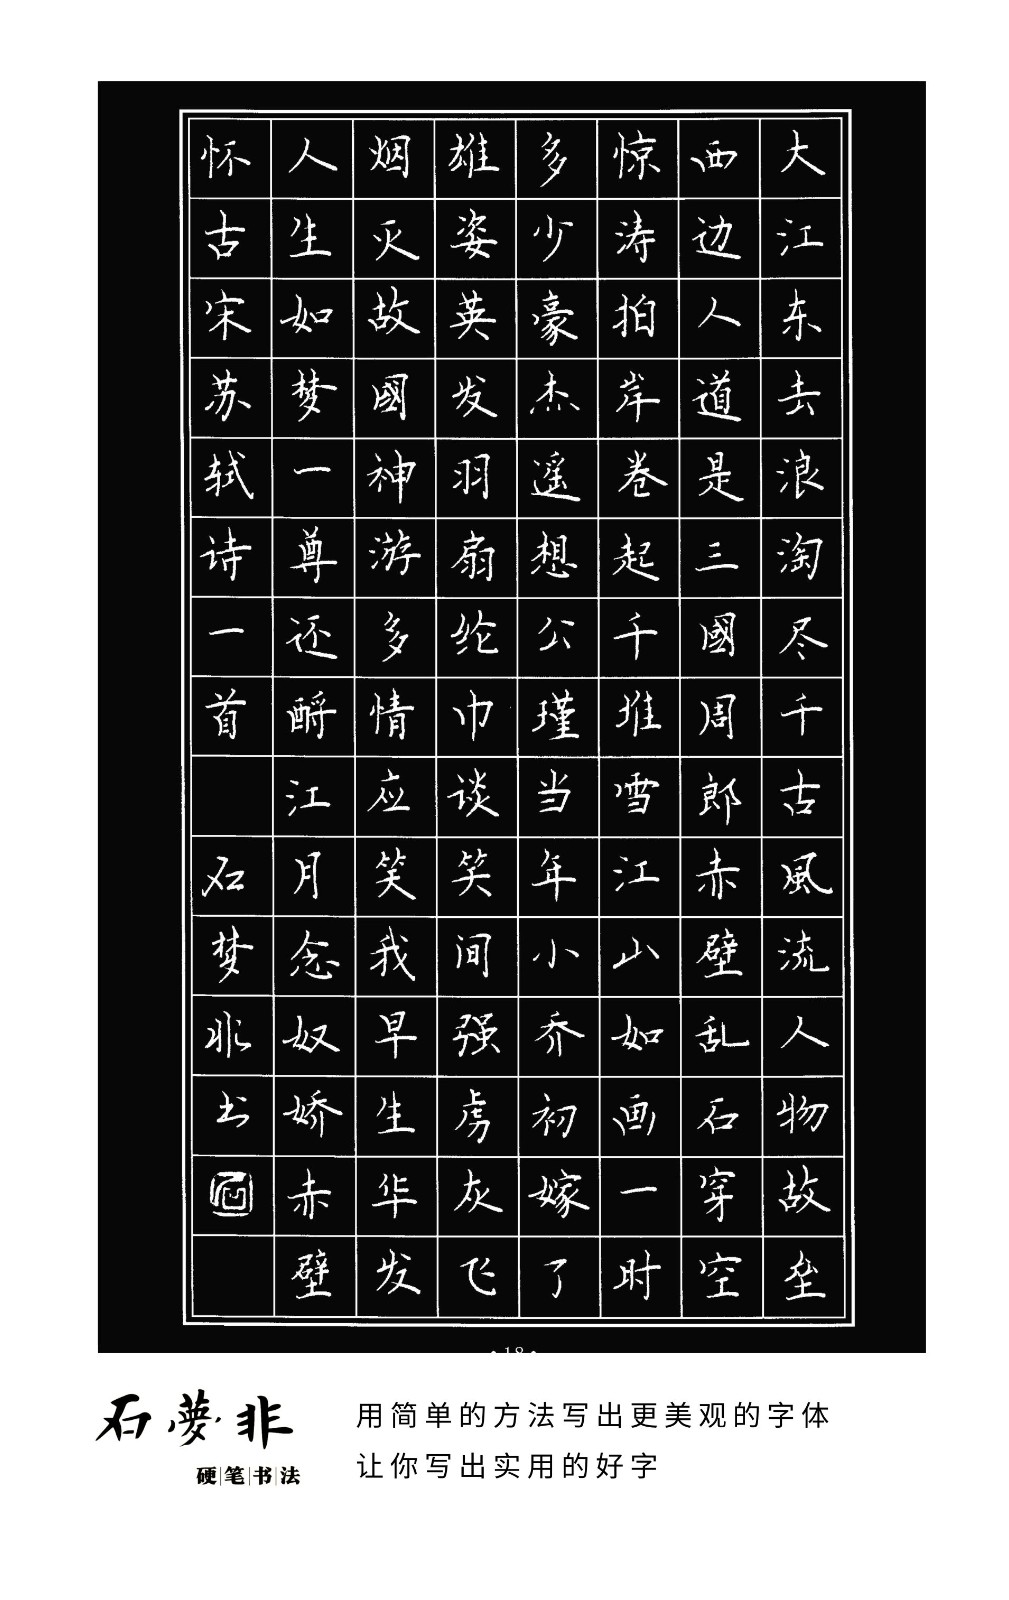 大江东去浪淘尽千古風流人物故垒
西边人道是三國周郎赤壁乱石穿空
惊涛拍岸卷起千堆雪江山如画一时
多少豪杰遥想公瑾当年小乔初嫁了
雄姿英发羽扇纶巾谈笑间强虏灰飞
烟灭故國神游多情应笑我早生华发
人生如梦一尊还酹江月念奴娇赤壁
怀古宋苏轼诗一首 石梦非书
·18·
石夢非
硬笔书法
用简单的方法写出更美观的字体
让你写出实用的好字